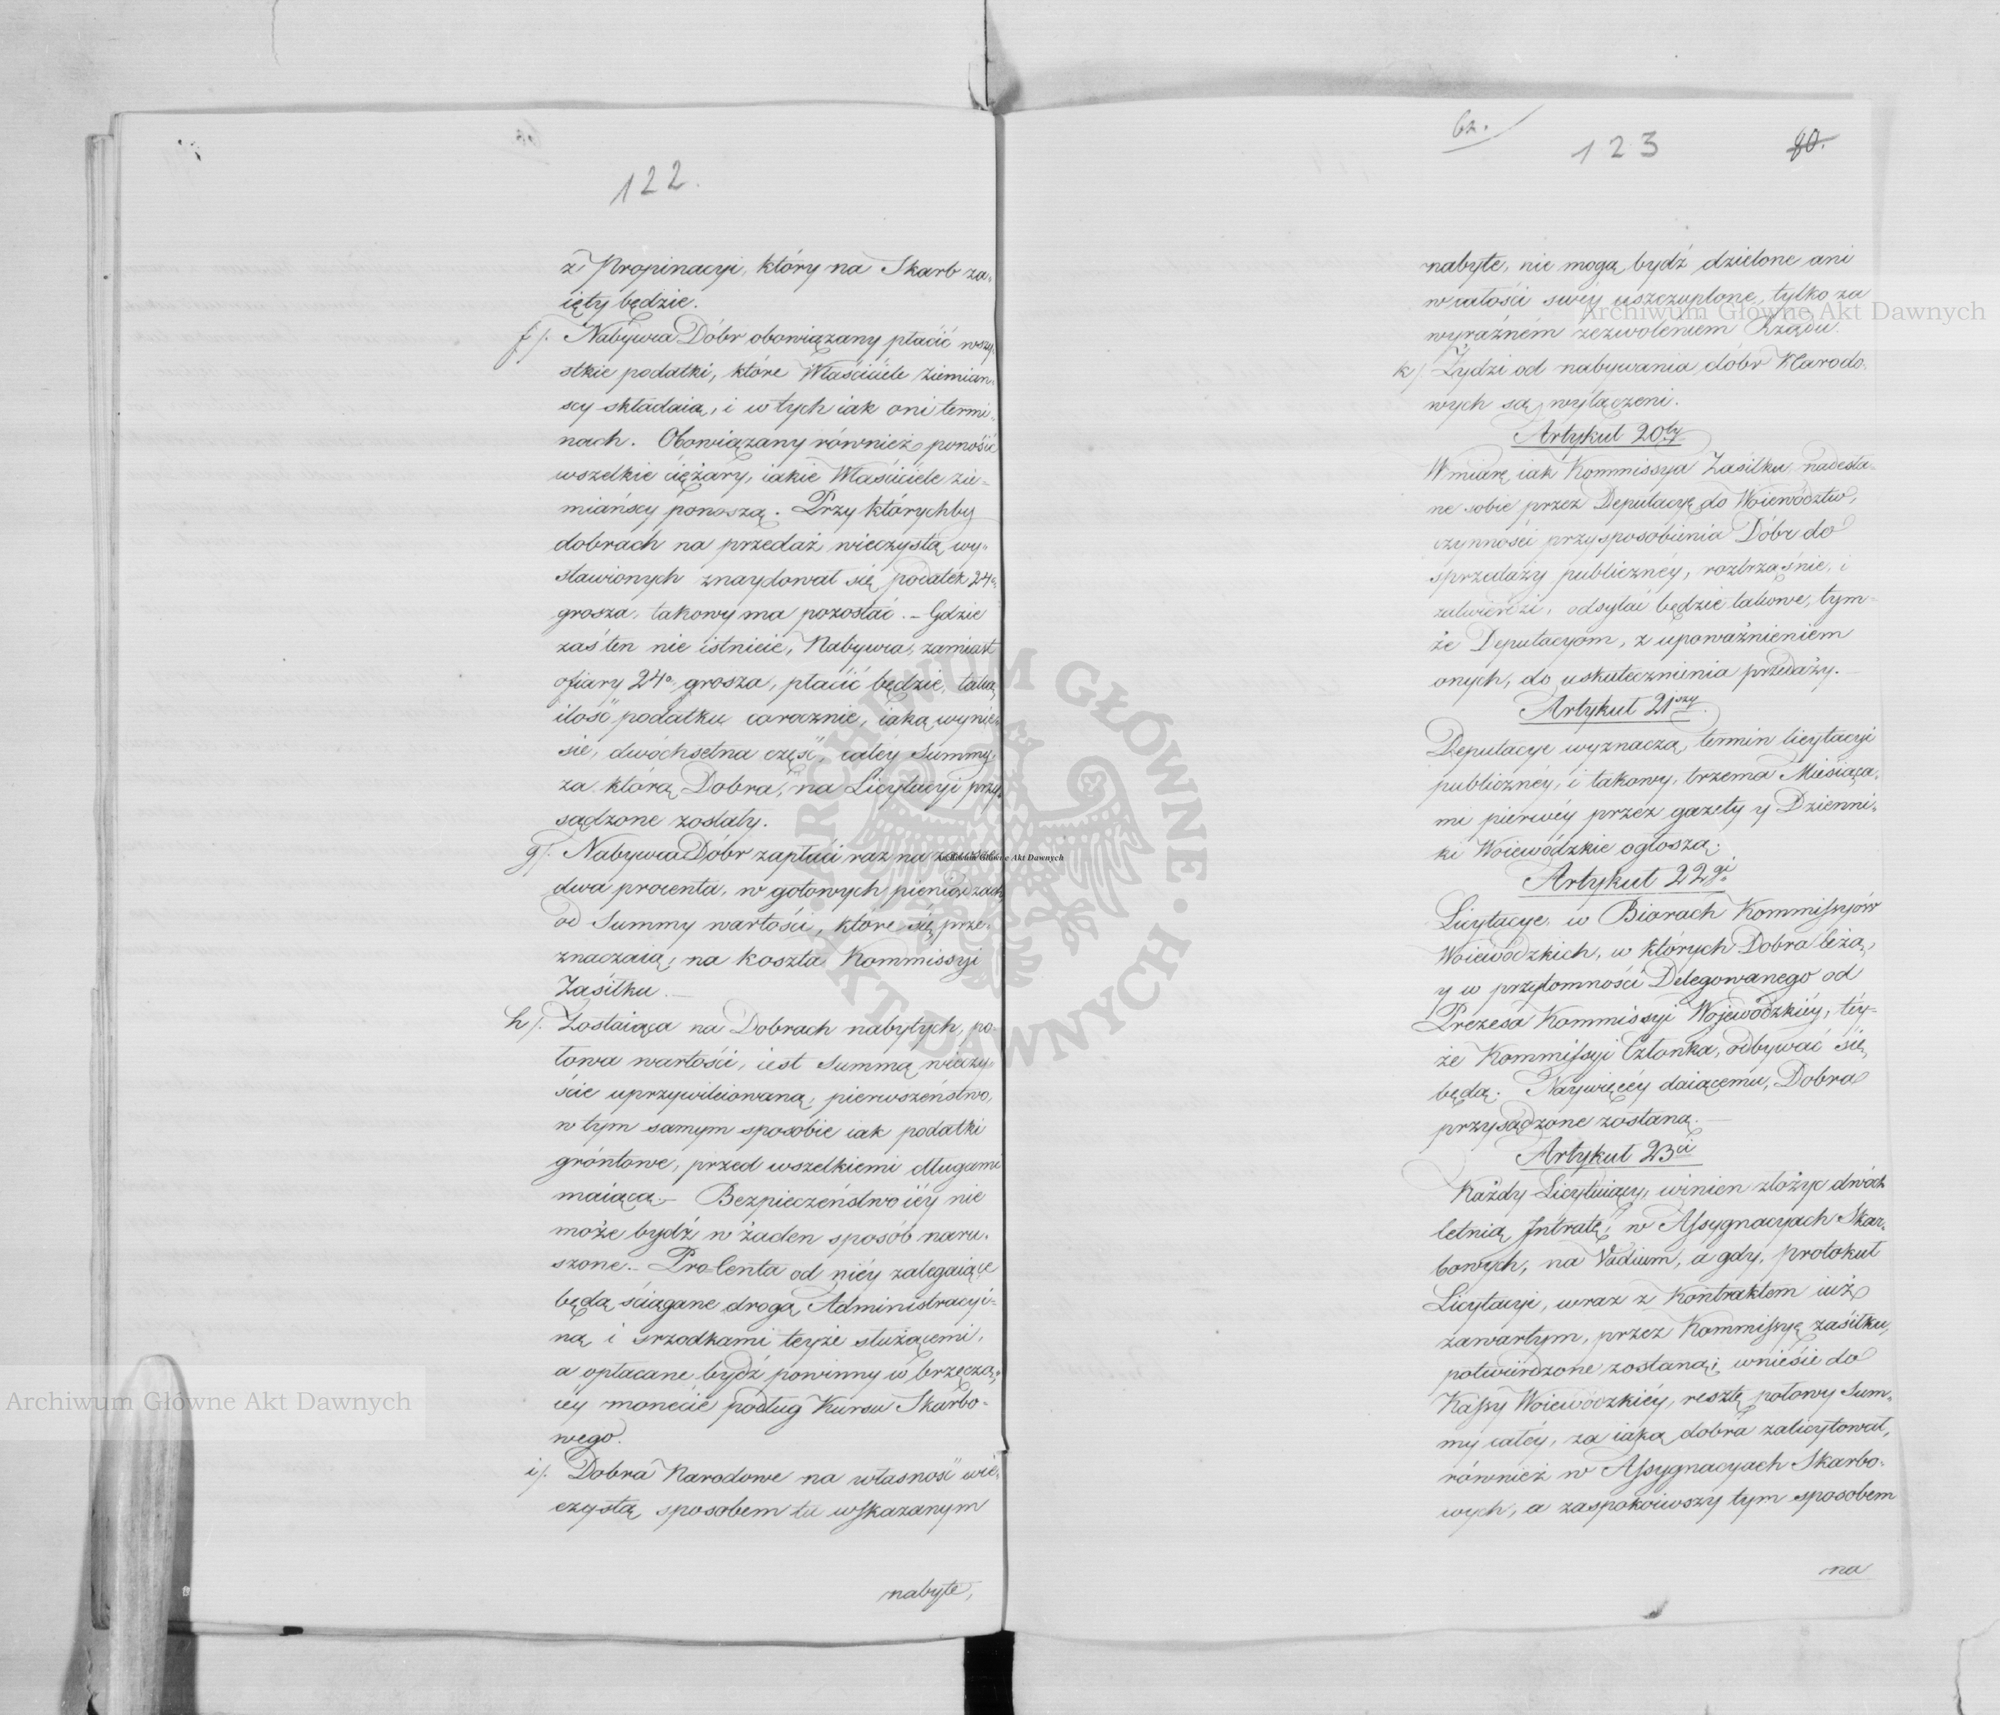 122.
z Propinacyi, który na Skarb za-
ięty będzie.
f/. Nabywca Dóbr obowiązany płacić wszy-
stkie podatki, które Właściciele Ziemian-
scy składaią, i w tych iak oni termi-
nach. Obowiązany również ponośić
wszelkie ciężary, iakie Właściciele zie-
miańscy ponoszą. Przy którychby
dobrach na przedaż wieczystą wy-
stawionych znaydował się podatek 24o
grosza, takowy ma pozostać. – Gdzie
zaś ten nie istnieie, Nabywca, zamiast
ofiary 24o grosza, płacić będzie, taką
ilość podatku corocznie, iaką wynie-
sie, dwóchsetna część, całéy Summy,
za którą Dobra, na Licytacyi przy-
sądzone zostały.
g/. Nabywca Dóbr zapłaci raz na zawsze
dwa procenta, w gotowych pieniądzach
od Summy wartości, które się prze-
znaczaią, na koszta Kommissyi
Zasiłku. –
h/. Zostaiąca na Dobrach nabytych, po-
łowa wartości, iest Summą wieczy-
ście uprzywileiowaną, pierwszeństwo,
w tym samym sposobie iak podatki
gróntowe, przed wszelkiemi długami
maiącą. – Bezpieczeństwo iéy nie
może bydź w żaden sposób naru-
szone. – Procenta od niéy zalegaiące
będą ściągane drogą Administracyi-
ną i srzodkami teyże służącemi,
a opłacane bydź powinny w brzęczą-
céy monecie podług Kursu Skarbo-
wego.
i/. Dobra Narodowe na własność wie-
czystą sposobem tu wskazanym
nabyte,
62.
123
80.
nabyte, nie mogą bydź dzielone ani
w całości swéy uszczuplone, tylko za
wyraźném zezwoleniem Rządu.
k/. Żydzi od nabywania dóbr Narodo-
wych są wyłączeni.
Artykuł 20ty
W miarę iak Kommissya Zasiłku nadesła-
ne sobie przez Deputacyę do Woiewództw,
czynności przysposobienia Dóbr do
sprzedaży publicznéy, roztrząśnie, i
zatwierdzi, odsyłać będzie takowe, tym-
że Deputacyom, z upoważnieniem
onych, do uskutecznienia przedaży. –
Artykuł 21szy.
Deputacye wyznaczą, termin licytacyi
publicznéy, i takowy, trzema Miesiąca-
mi pierwéy przez gazety y Dzienni-
ki Woiewódzkie ogłoszą.
Artykuł 22gi
Licytacye, w Biorach Kommissyów
Woiewódzkich, w których Dobra leżą,
y w przytomności Delegowanego od
Prezesa Kommissyi Wojewódzkiéy, téy-
że Kommissyi Członka, odbywać się
będą. Naywięcéy daiącemu, Dobra
przysądzone zostaną. –
Artykuł 23ci
Każdy Licytuiący, winien złożyc dwóch
letnią Intratę, w Assygnacyach Skar-
bowych, na Vadium, a gdy, protokuł
Licytacyi, wraz z Kontraktem iuż
zawartym, przez Kommissyę zasiłku,
potwierdzone zostaną, wnieśie do
Kassy Woiewódzkiéy, resztę połowy Sum-
my całéy, za iaką dobra zalicytował,
również w Assygnacyach Skarbo-
wych, a zaspokoiwszy tym sposobem
na
Archiwum Główne Akt Dawnych
Archiwum Główne Akt Dawnych
Archiwum Główne Akt Dawnych
ARCHIWUM GŁÓWNE · AKT DAWNYCH ·